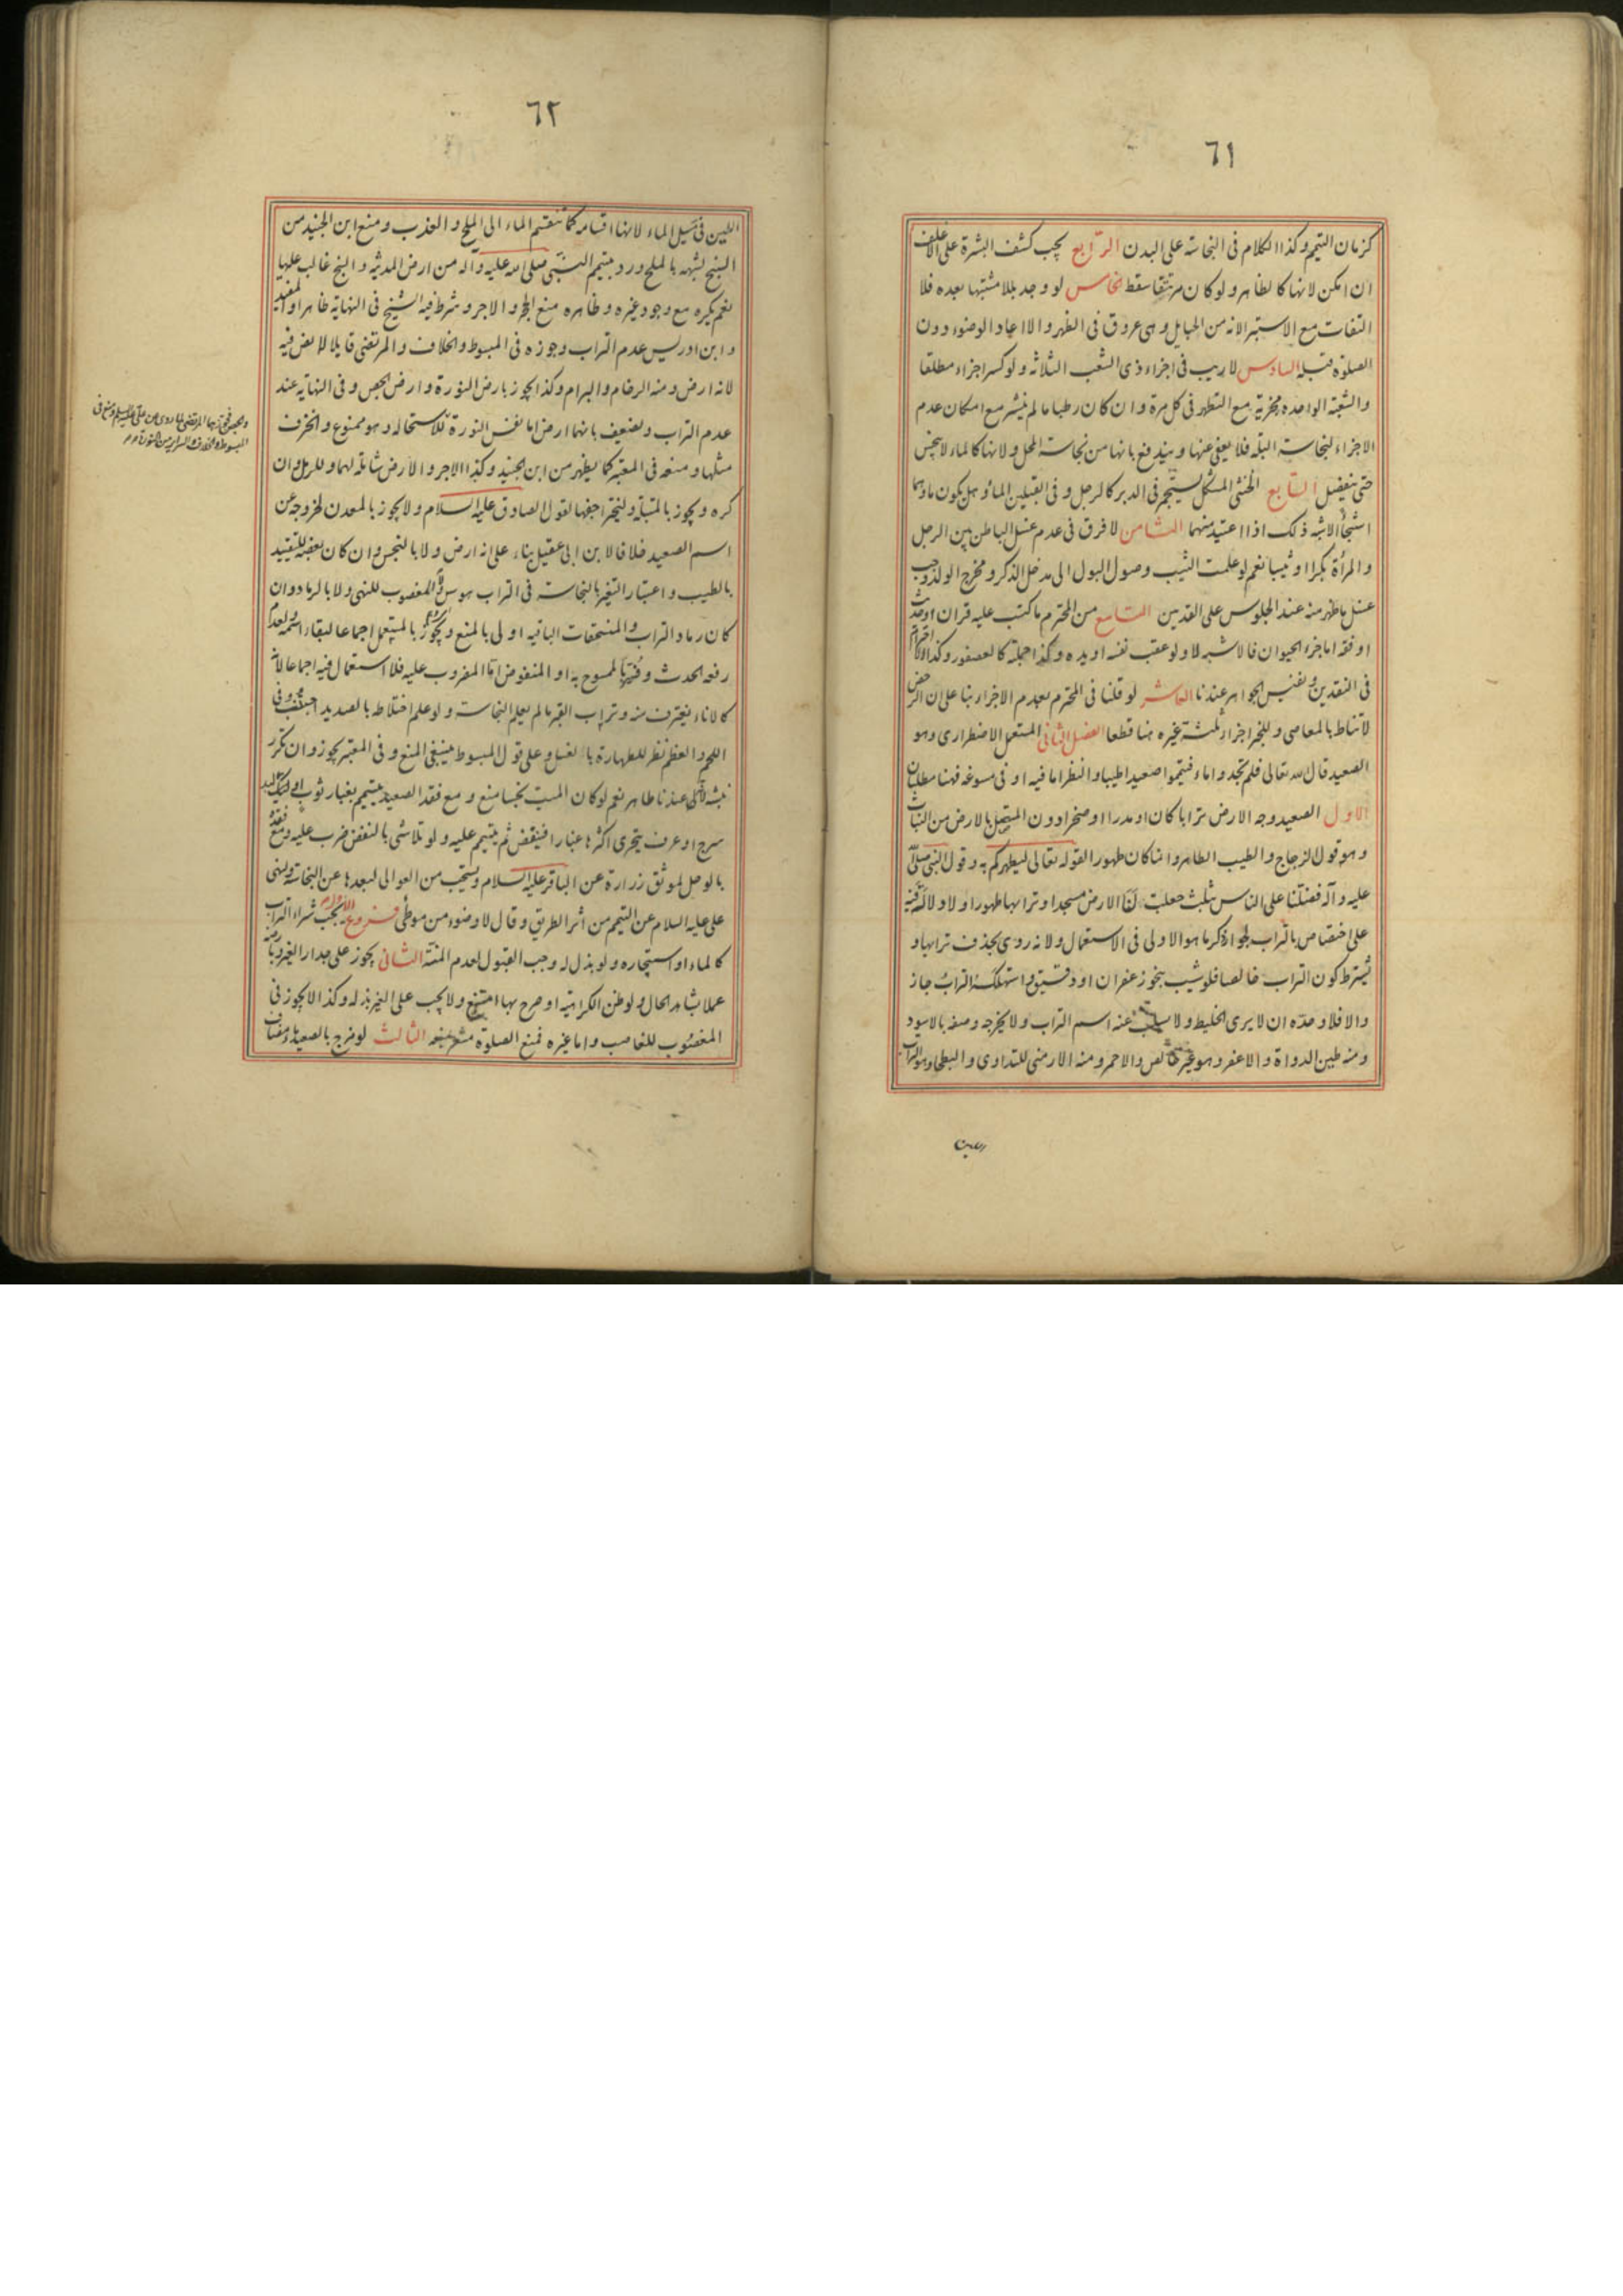 ٦١
كزمان التيمم وكذا الكلام فى النجاسة على البدن الرابع يجب كشف البشرة على الاغلف
ان امكن لانها كالظاهر ولو كان مرتتقا سقط الخامس لو وجد بللا مشتبها بعده فلا
التفات مع الاستبراء لانه من الحبايل وهى عروق فى الظهر والا اعاد الوضوء دون
الصلوة قبله السادس لا ريب فى اجزاء ذى الشعب الثلاثه ولو كسر اجزاء مطلقا
والشعبة الواحده مجزية مع التطهر فى كل مرة وان كان رطبا ما لم ينشر مع امكان عدم
الاجزاء لنجاسة البلة فلا يعفى عنها ويندفع بانها من نجاسة المحل ولانها كالماء لا ينجس
حتى ينفصل السابع الخنثى المشكل يستجمر فى الدبر كالرجل وفى القبلين الماء وهل يكون
الاشبه ذلك اذا اعتيد منهما الثامن لا فرق فى عدم غسل الباطن بين الرجل
والمرأة بكرا او ثيبا نعم لو علمت الثيب وصول البول الى مدخل الذكر ومخرج الولد وجب
غسل ما ظهر منه عند الجلوس على القدمين التاسع من المحترم ما كتب عليه قران او حديث
او فقه اما جزء الحيوان فالاشبه لا ولو عقب نفسه او يده وكذا جملته كالعصفور وكذا لا احترام
فى النقدين ونفيس الجواهر عندنا العاشر لو قلنا فى المحترم بعدم الاجزاء بنا على ان الرخص
لا تناط بالمعاصى وللخبر اجزا ثلثة غيره هنا قطعا الفصل الثانى المستعمل الاضطرارى وهو
الصعيد قال الله تعالى فلم تجدوا ماء فتيمموا صعيدا طيبا والنظر اما فيه او فى مسوغه فهنا مطلبان
الاول الصعيد وجه الارض ترابا كان او مدرا او صخرا دون المتصل بالارض من النبات
وهو قول الزجاج والطيب الطاهر وانما كان طهورا لقوله تعالى ليطهركم به وقول النبى صلى الله
عليه وآله فضلنا على الناس بثلث جعلت لنا الارض مسجدا وترابها طهورا ولا دلالة فيه
على اختصاص بالتراب لجواز ذكر ما هو الاولى فى الاستعمال ولانه روى بحذف ترابها و
يشترط كون التراب خالصا فلو شيب بنحو زعفران او دقيق واستهلكه التراب جاز
والا فلا وحده ان لا يرى الخليط ولا يسلب عنه اسم التراب ولا يخرجه وصفه بالاسود
ومنه طين الدواة والاعفر وهو غير خالص والاحمر ومنه الارمنى للتداوى والبطحا وهو التراب
اللين
٦٢
اللين فى مسيل الماء لانها اقسامه كما تنقسم الماء الى الملح والعذب ومنع ابن الجنيد من
السبخ لشبهه بالملح ورد بتيمم النبى صلى الله عليه واله من ارض المدينة والسبخ غالب عليها
نعم يكره مع وجود غيره وظاهره منع الحجر والاجر وشرط فيه الشيخ فى النهاية ظاهرا والمفيد
وابن ادريس عدم التراب وجوزه فى المبسوط والخلاف والمرتضى قايلا لا نص فيه
لانه ارض ومنه الرخام والبرام وكذا يجوز بارض النورة وارض الجص وفى النهاية عند
عدم التراب ويضعف بانهما ارض اما نفس النورة فلا للاستحاله وهو ممنوع والخزف
مثلها ومنعه فى المعتبر كما يظهر من ابن الجنيد وكذا الاجر والارض شاملة لهما وللرمل وان
كره ويجوز بالمبتلة وليتحر اجفها لقول الصادق عليه السلام ولا يجوز بالمعدن لخروجه عن
اسم الصعيد خلافا لابن ابى عقيل بناء على انه ارض ولا بالنجس وان كان بعضه للتقييد
بالطيب واعتبار التغير بالنجاسة فى التراب هوس ولا المغصوب للنهى ولا بالرماد وان
كان رماد التراب والمنسحقات الباقيه اولى بالمنع ويجوز بالمستعمل اجماعا لبقاء اسمه ولعدم
رفعه الحدث وفسر بالممسوح به او المنفوض اما المضروب عليه فلا استعمال فيه اجماعا لانه
كالاناء يغترف منه وتراب القبر ما لم يعلم النجاسة ولو علم اختلاطه بالصديد اجتنب وفى
اللحم والعظم نظر للطهارة بالغسل وعلى قول المبسوط ينبغى المنع وفى المعتبر يجوز وان تكرر
نبشه لانه عندنا طاهر نعم لو كان الميت نجسا منع ومع فقد الصعيد يتيمم بغبار ثوب او لبد
سرج او عرف يتحرى اكثرها غبارا فينفض ثم يتيمم عليه ولو تلاشى بالنفض ضرب عليه ومع فقده
بالوحل لموثق زرارة عن الباقر عليه السلام ويستحب من العوالى لبعدها عن النجاسة ولنهى
على عليه السلام عن التيمم من أثر الطريق وقال لا وضوء من موطئ فروع الاول يجب شراء التراب
كالماء او استيجاره ولو بذل له وجب القبول لعدم المنة الثانى يجوز على جدار الغير وبارضه
عملا بشاهد الحال ولو ظن الكراهية او صرح بها امتنع ولا يجب على الغير بذله وكذا لا يجوز فى
المغصوب للغاصب واما غيره فمنع الصلوة مشعر بمنعه الثالث لو مزج بالصعيد مضاف